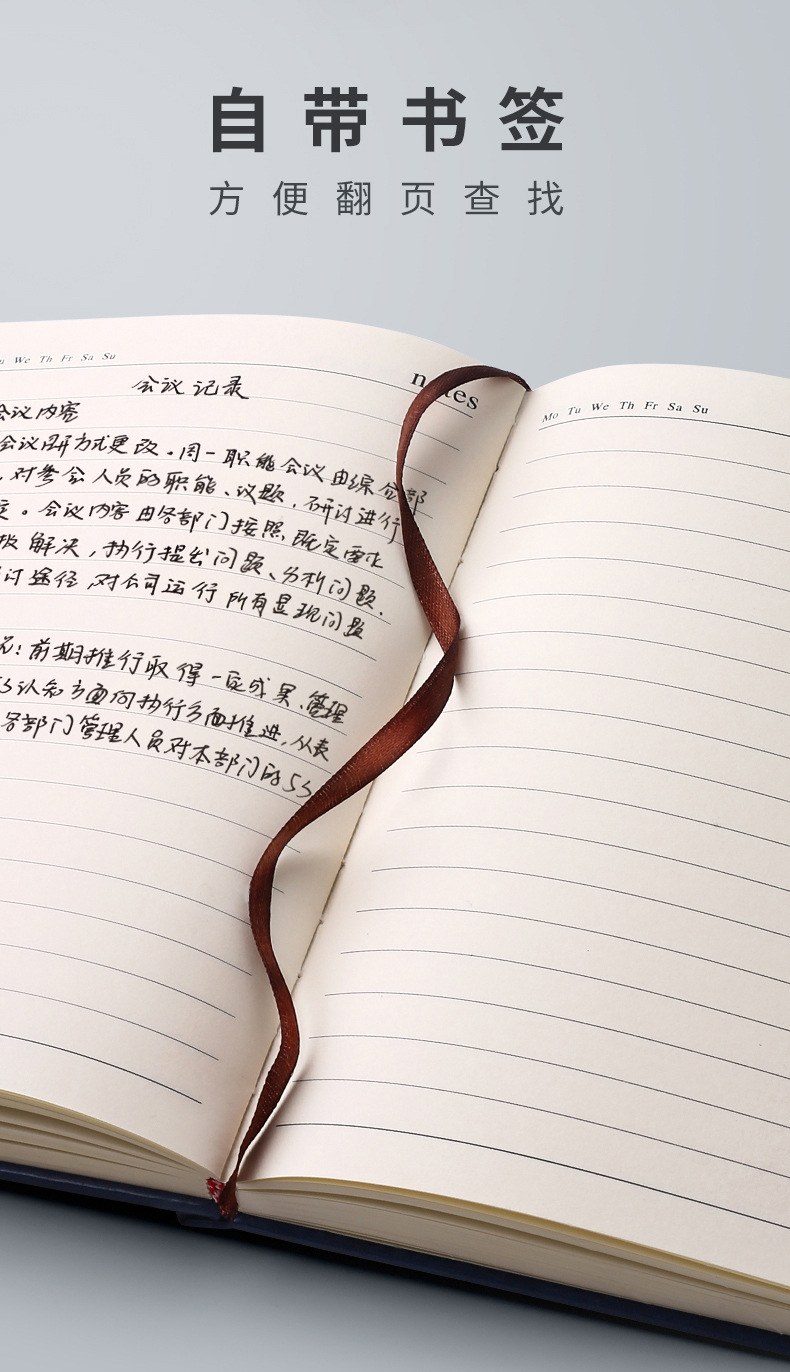 自带书签
方便翻页查找
We Th Fr Sa Su
notes
Mo Tu We Th Fr Sa Su
会议记录
会议内容
会议召开方式更改。周一职能会议由综合部
,对参会人员的职能、议题,研讨进行
定。会议内容由各部门按照既定要求
解决,执行提出问题、分析问题、
讨途径,对公司运行所有显现问题
:前期推行取得一定成果、管理
5S认知方面向执行方面推进,从表
各部门管理人员对本部门的5S